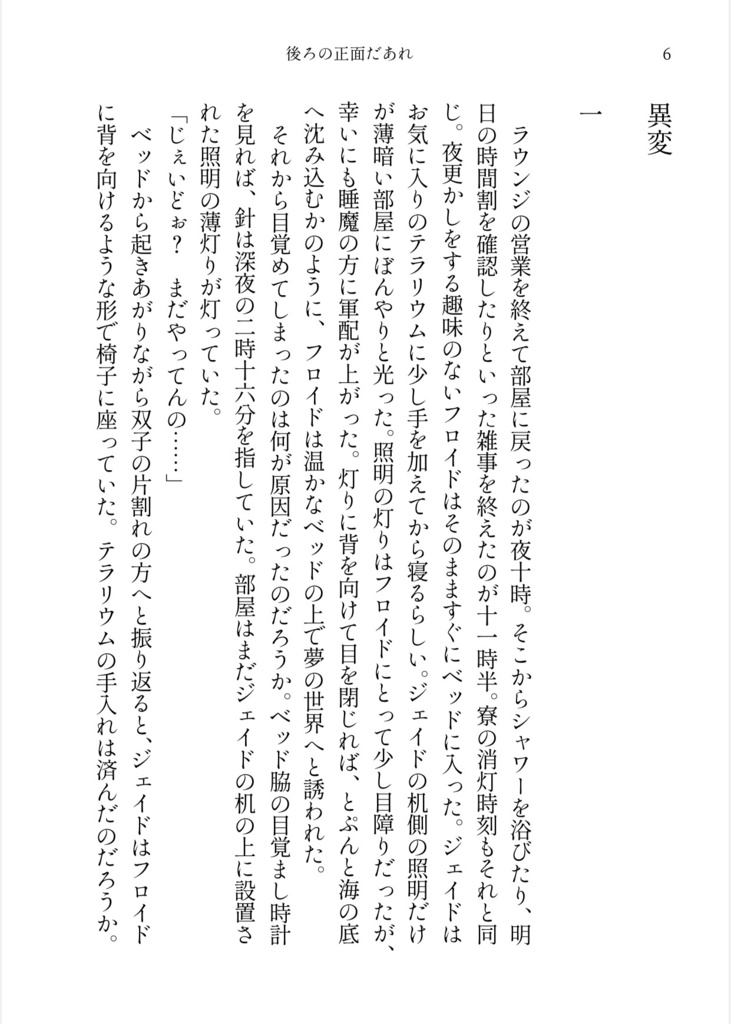 後ろの正面だあれ
6
異変
一
　ラウンジの営業を終えて部屋に戻ったのが夜十時。そこからシャワーを浴びたり、明
日の時間割を確認したりといった雑事を終えたのが十一時半。寮の消灯時刻もそれと同
じ。夜更かしをする趣味のないフロイドはそのまますぐにベッドに入った。ジェイドは
お気に入りのテラリウムに少し手を加えてから寝るらしい。ジェイドの机側の照明だけ
が薄暗い部屋にぼんやりと光った。照明の灯りはフロイドにとって少し目障りだったが、
幸いにも睡魔の方に軍配が上がった。灯りに背を向けて目を閉じれば、とぷんと海の底
へ沈み込むかのように、フロイドは温かなベッドの上で夢の世界へと誘われた。
　それから目覚めてしまったのは何が原因だったのだろうか。ベッド脇の目覚まし時計
を見れば、針は深夜の二時十六分を指していた。部屋はまだジェイドの机の上に設置さ
れた照明の薄灯りが灯っていた。
「じぇいどぉ？　まだやってんの……」
　ベッドから起きあがりながら双子の片割れの方へと振り返ると、ジェイドはフロイド
に背を向けるような形で椅子に座っていた。テラリウムの手入れは済んだのだろうか。